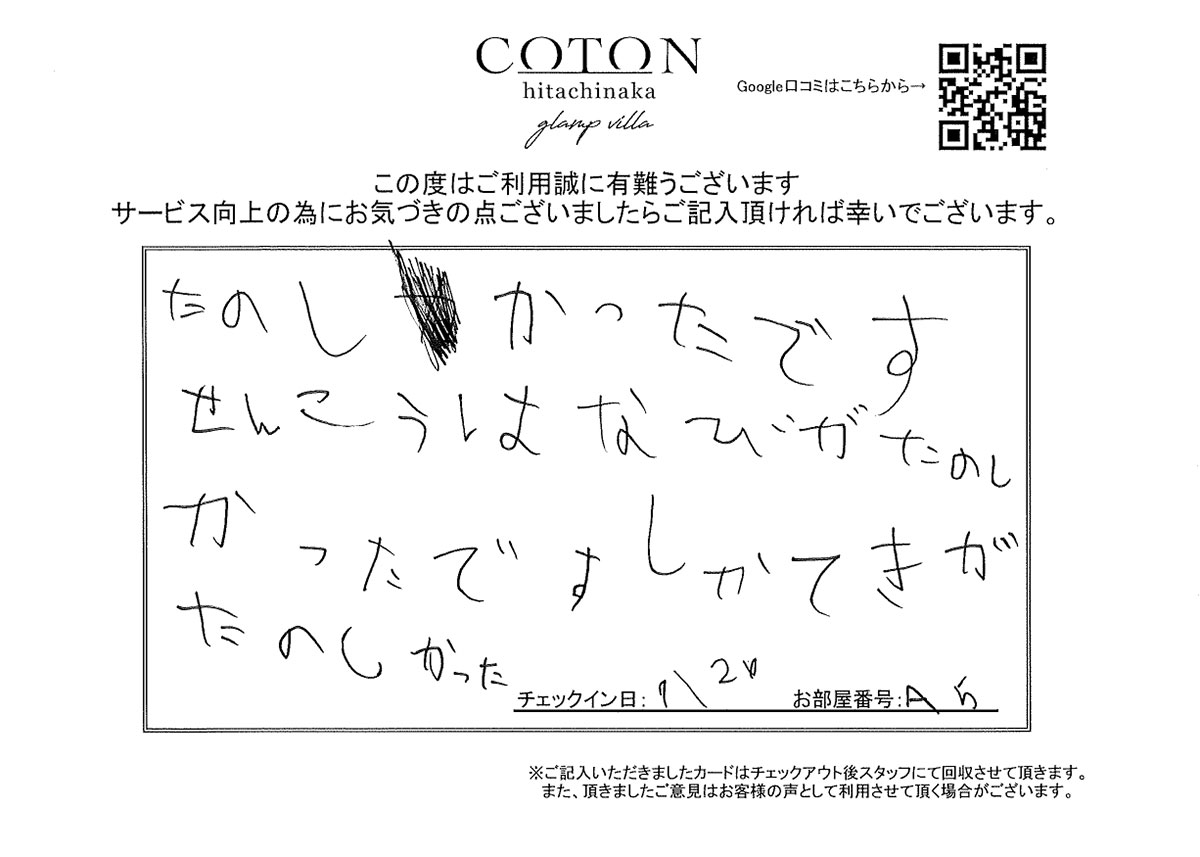 COTON
hitachinaka
glamp villa
Google口コミはこちらから→
この度はご利用誠に有難うございます
サービス向上の為にお気づきの点ございましたらご記入頂ければ幸いでございます。
たのしかったです
せんこうはなびがたのし
かったですしかてきが
たのしかった
チェックイン日:
お部屋番号:A5
※ご記入いただきましたカードはチェックアウト後スタッフにて回収させて頂きます。
また、頂きましたご意見はお客様の声として利用させて頂く場合がございます。